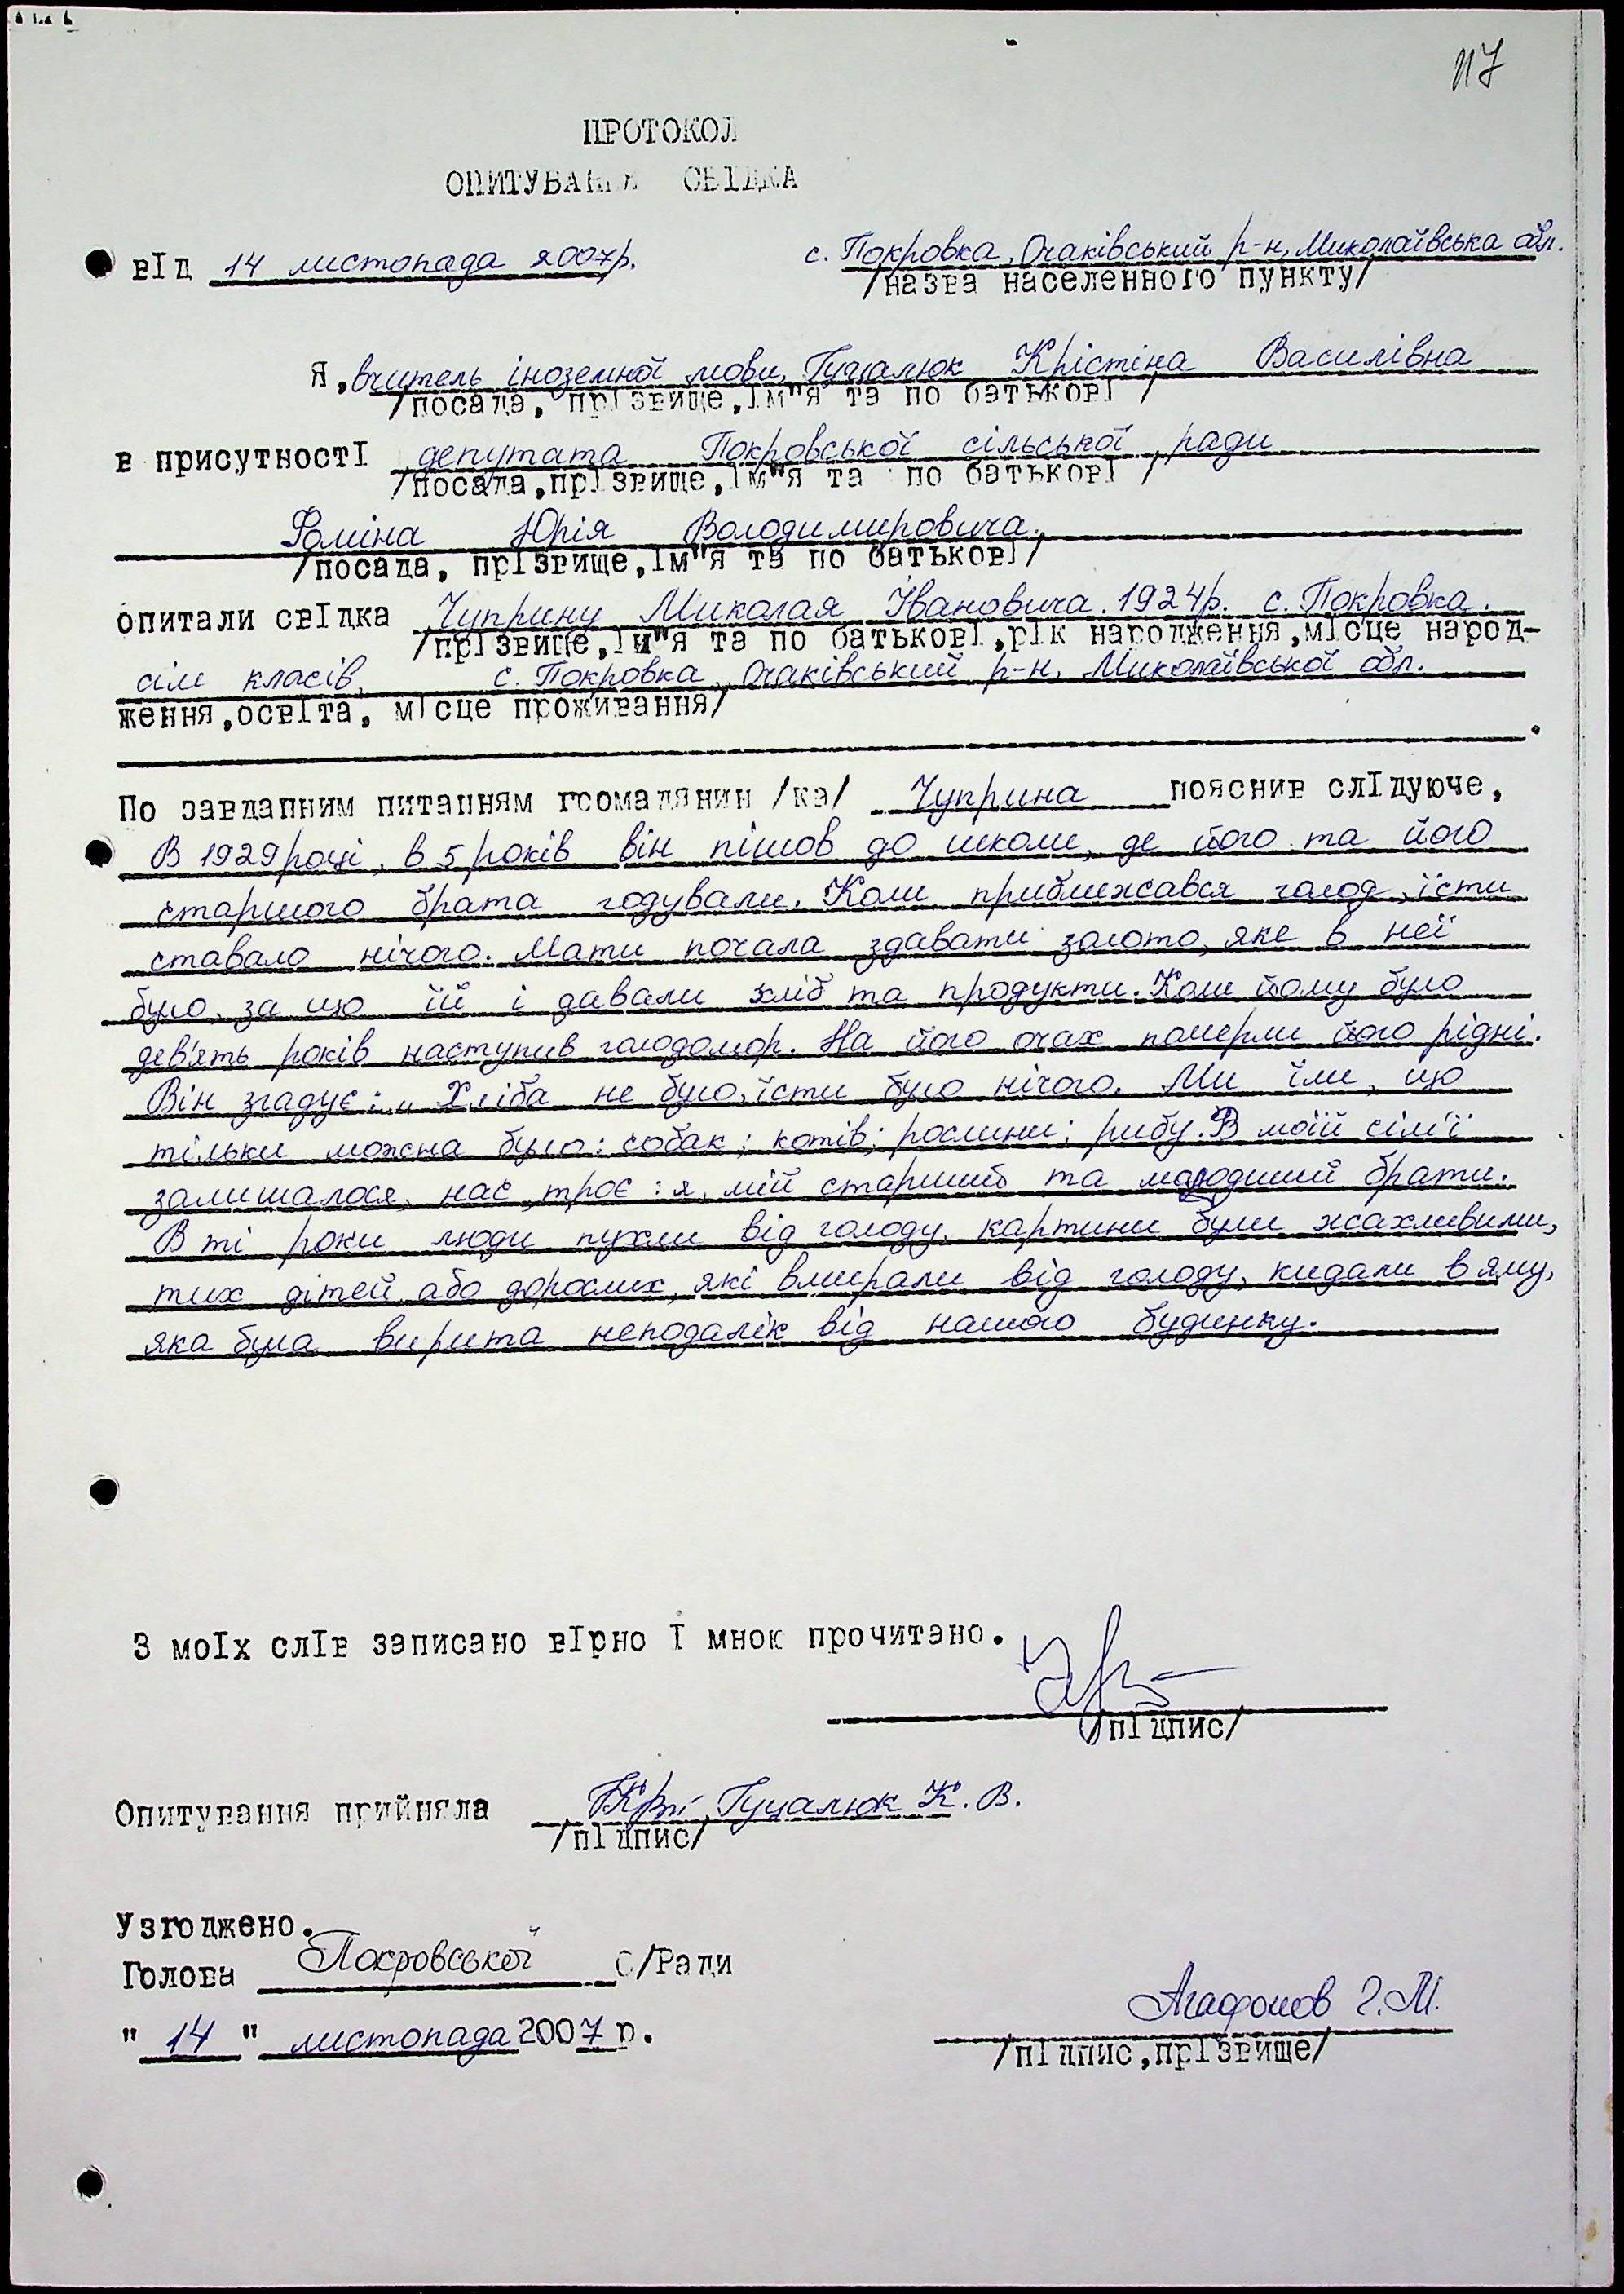 117
ПРОТОКОЛ
ОПИТУВАННЯ СВІДКА
вІд 14 листопада 2007р. с. Покровка, Очаківський р-н, Миколаївська обл.
/назва населенного пункту/
Я, вчитель іноземної мови, Гуцалюк Крістіна Василівна
/посада, прІзвище,Ім"я та по батьковІ /
в присутностІ депутата Покровської сільської ради
/посада,прІзвище,Ім"я та по батьковІ /
Фоміна Юрія Володимировича,
/посада, прІзвище,Ім"я та по батьковІ/
опитали свІдка Чуприну Миколая Івановича. 1924р. с. Покровка.
/прІзвище,Ім"я та по батьковІ,рІк народження,мІсце народ-
сім класів, с. Покровка, Очаківський р-н, Миколаївської обл.
ження,освІта, мІсце проживання/
По завданним питанням громадянин /ка/ Чуприна пояснив слІдуюче,
В 1929 році, в 5 років він пішов до школи, де його та його
старшого брата годували. Коли приближався голод, їсти
ставало нічого. Мати почала здавати золото, яке в неї
було, за що їй і давали хліб та продукти. Коли йому було
дев'ять років наступив голодомор. На його очах померли його рідні.
Він згадує: „ Хліба не було, їсти було нічого. Ми їли, що
тільки можна було: собак; котів; рослини; рибу. В моїй сім'ї
залишалося, нас троє: я, мій старший та молодший брати.
В ті роки люди пухли від голоду, картини були жахливими,
тих дітей або дорослих, які вмирали від голоду, кидали в яму,
яка була вирита неподалік від нашого будинку.
З моІх слІв записано вІрно І мною прочитано.
/пІдпис/
Опитування прийняла Гуцалюк К. В.
/пІдпис/
Узгоджено.
Голова Покровської С/Ради
" 14 " листопада 2007 р. Агафонов Г. М.
/пІдпис,прІзвище/